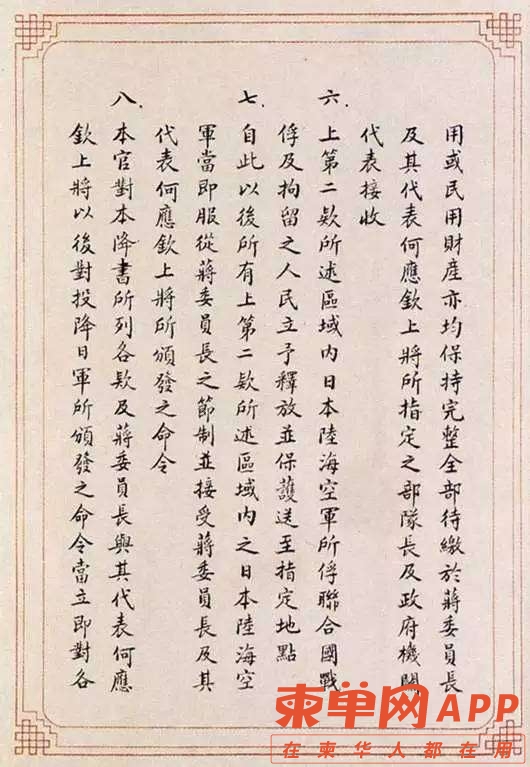 用或民用財産亦均保持完整全部待繳於蔣委員長
及其代表何應欽上將所指定之部隊長及政府機關
代表接收
六.上第二款所述區域內日本陸海空軍所俘聯合國戰
俘及拘留之人民立予釋放並保護送至指定地點
七.自此以後所有上第二款所述區域內之日本陸海空
軍當即服從蔣委員長之節制並接受蔣委員長及其
代表何應欽上將所頒發之命令
八.本官對本降書所列各款及蔣委員長與其代表何應
欽上將以後對投降日軍所頒發之命令當立即對各
柬单网APP
在柬华人都在用